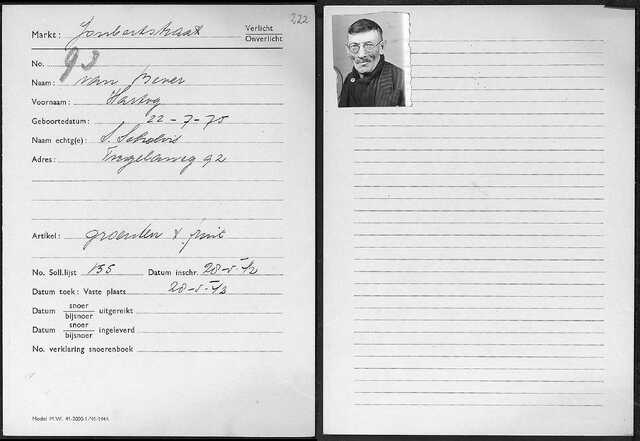 222
Markt: Joubertstraat Verlicht
Onverlicht
No. 93
Naam: van Bever
Voornaam: Hartog
Geboortedatum: 22-7-70
Naam echtg(e): S. Schelvis
Adres: 92
Artikel: groenten & fruit
No. Soll.lijst 135 Datum inschr. 20-5-42
Datum toek: Vaste plaats 20-5-42
Datum snoer
bijsnoer uitgereikt
Datum snoer
bijsnoer ingeleverd
No. verklaring snoerenboek
Model M.W.